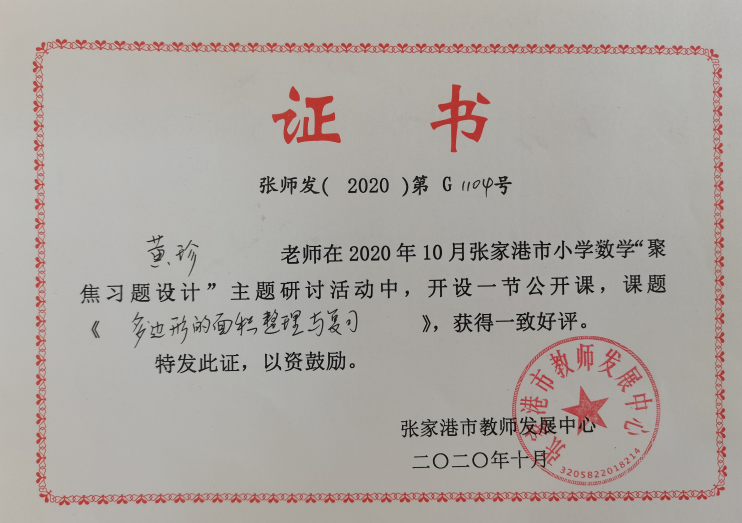 证 书
张师发( 2020 )第 G 1104号
黄珍 老师在 2020 年 10 月张家港市小学数学“聚
焦习题设计”主题研讨活动中，开设一节公开课，课题
《 多边形的面积整理与复习 》，获得一致好评。
特发此证，以资鼓励。
张家港市教师发展中心
二〇二〇年十月
张家港市教师发展中心
3205822018214